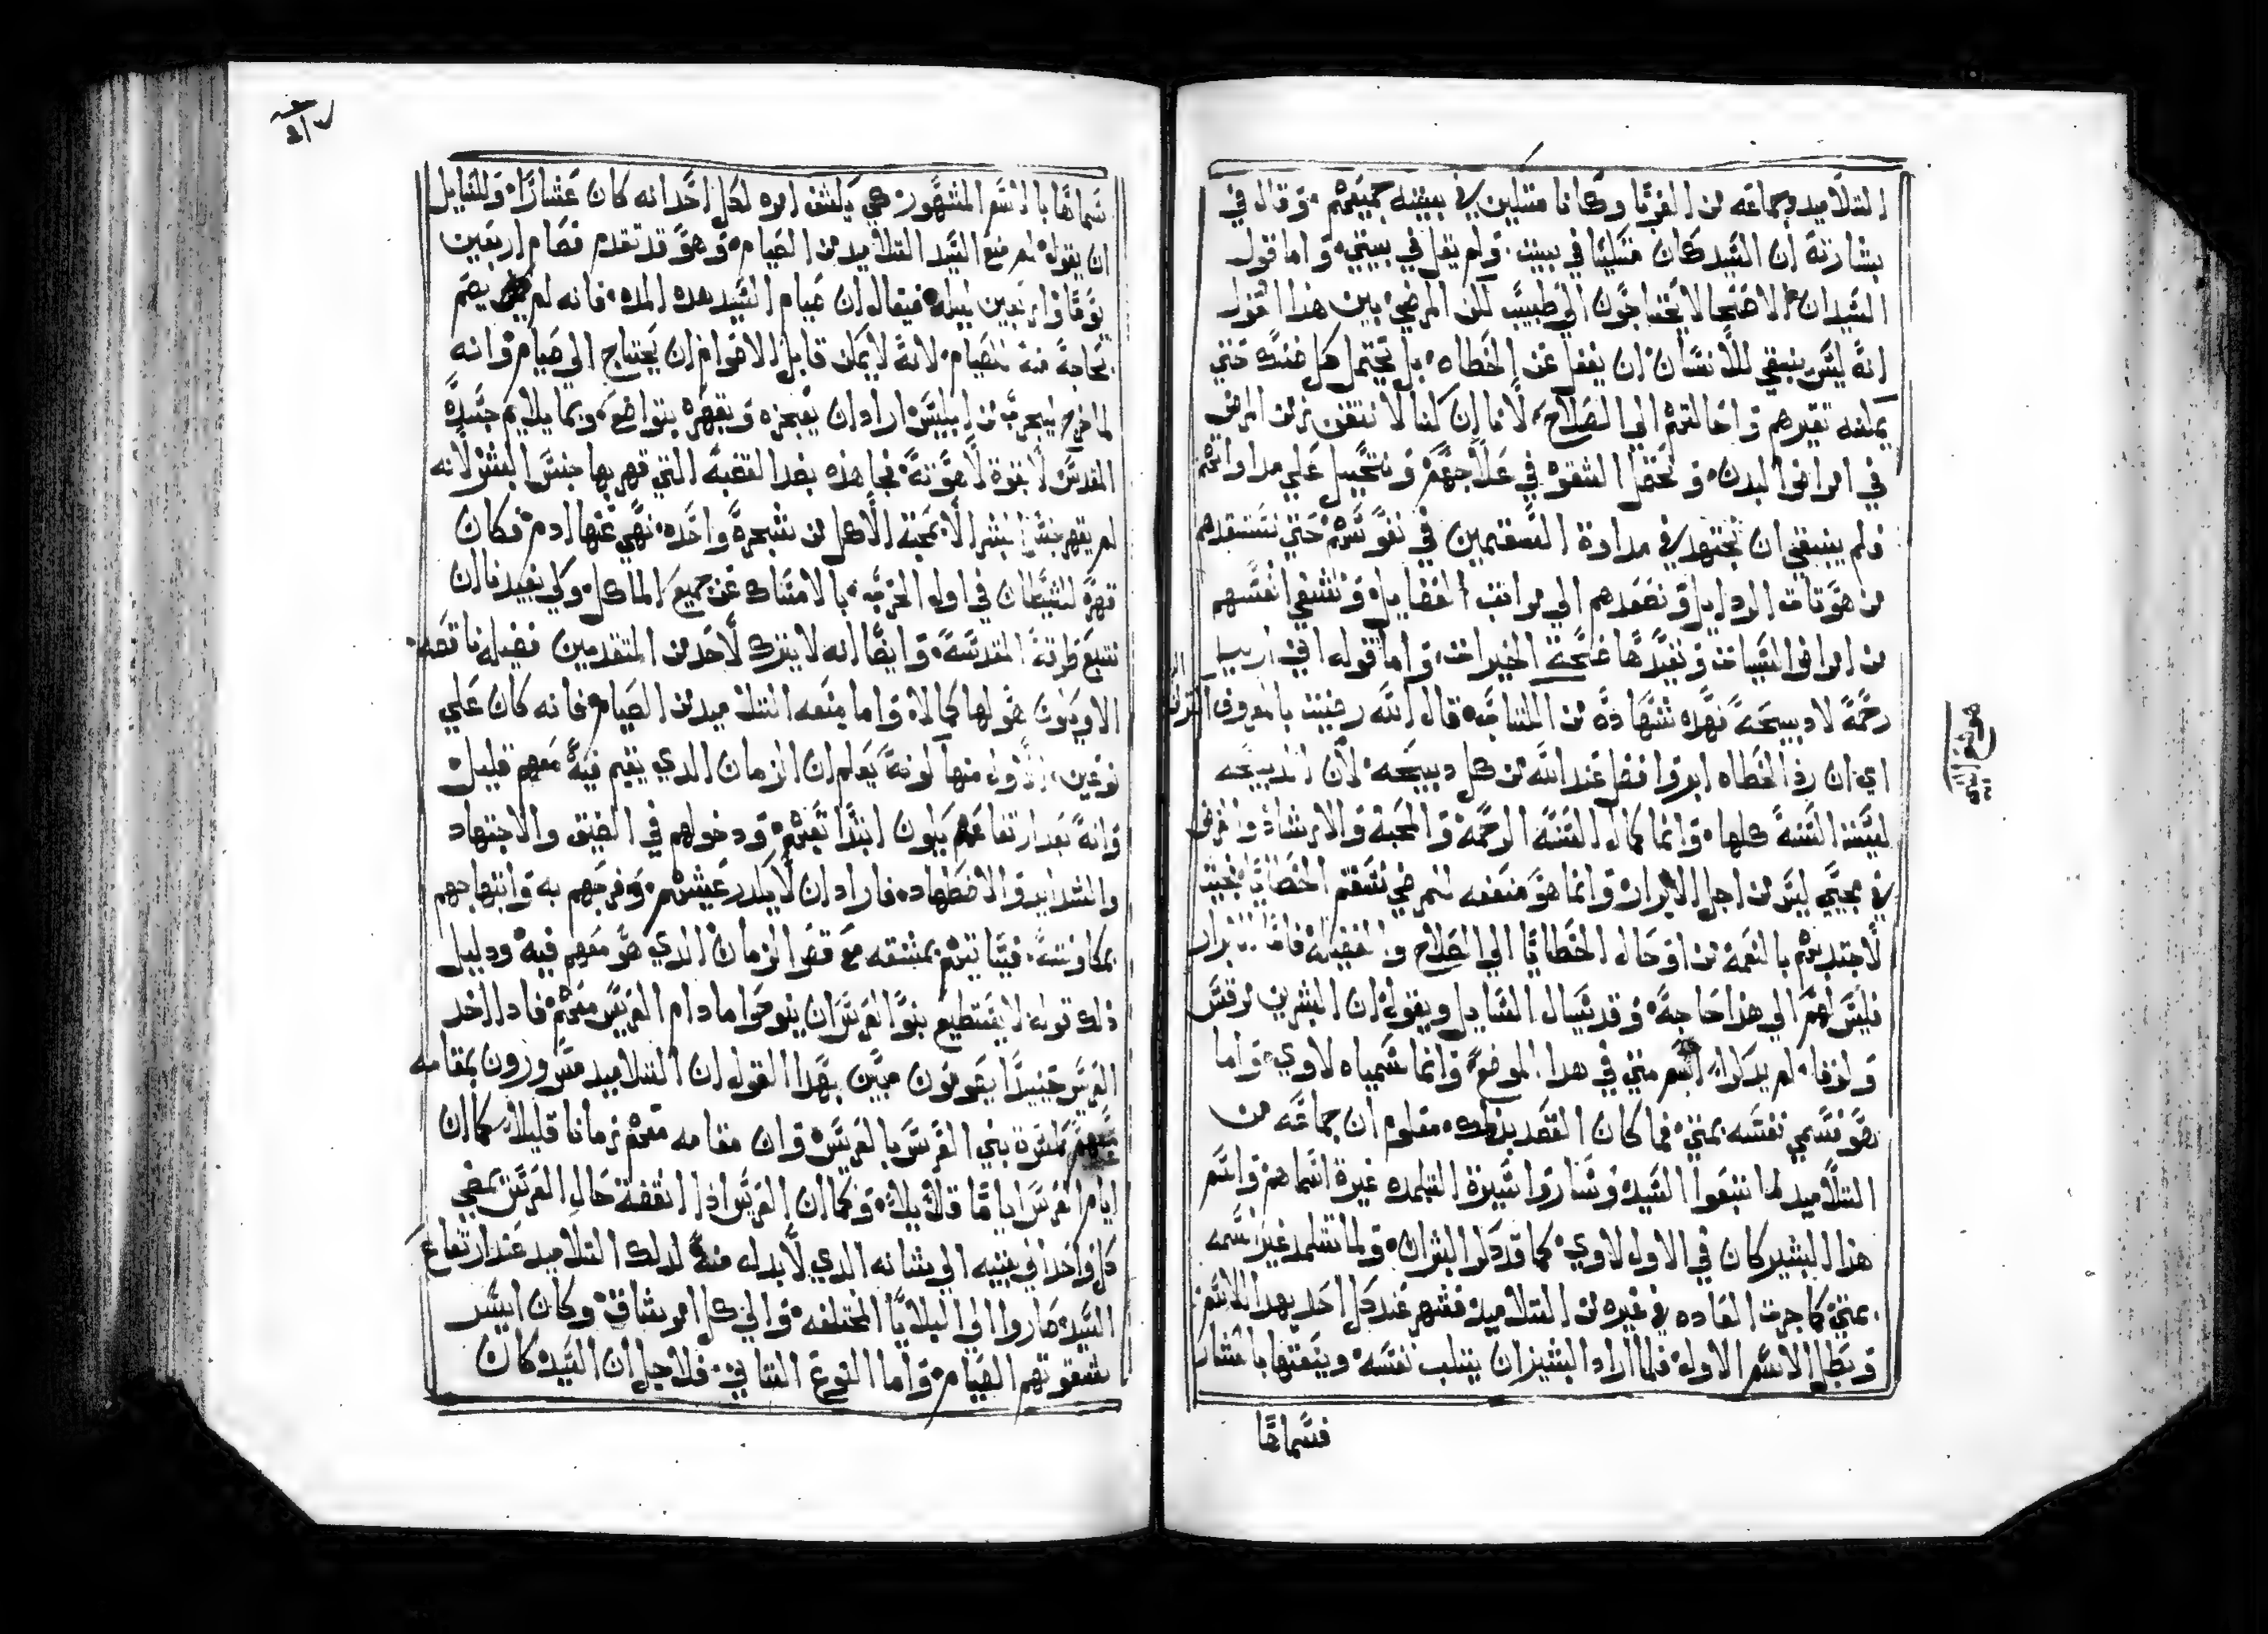 التلاميد وجماعه من الفرقا وكانا متليين في بيته جميعهم. وقال في
بشارته ان السيد كان متليا في بيت. ولم يقل في بيتي. واما قول
السيد ان الاصحا لا يحتاجون الي طبيب لكن المرضي. بين هدا القول
انه ليس ينبغي للانسان ان يغفل عن الخطاه. بل يحتمل كل ضنك حتي
يمكنه تغيرهم واحالتهم الي الصلاح. لاننا ان كنا لا نتغزز من المرضي
في امراض البدن. ونحتمل الشقوه في علاجهم ونتحيل علي مداواتهم
فلم ينبغي ان نجتهد في مداوة السقيمين في نفوسهم حتي نستنقدهم
من هوتات الردايل ونصعدهم الي مراتب الفضايل. ونشفي انفسهم
من امراض السيات ونفيدها صحة الخيرات. واما قوله اني اريد
رحمة لا دبيحة فهده شهاده من الكتاب. قال الله رضيت بالمعروف
اي ان رد الخطاه ابر وافضل عند الله من كل دبيحه. لان الدبيحه
ليست السنة كلها. وانما كمال السنة الرحمة والمحبة والارشاد
في مجيي ليس من اجل الابرار وانما هو منفعه لمرضي سقم الخطايا
لاجتدبهم بالنعمة من اوحال الخطايا الي الصلاح والفضيلة فاما الابرار
فليس لهم الي هذا حاجة. وقد يسال السايل ويقول ان البشرين مرقس
ولوقا. لم يدكرا اسم متي في هدا الموضع. وانما سمياه لاوي. واما
هو فسمي نفسه بمتي. فما كان القصد بدلك. معلوم ان جماعه من
التلاميد لما اتبعوا السيد وساروا سيرة التلمده غيرة اسماهم واسم
هدا البشير كان في الاول لاوي. كما قد دكر البشران. ولما تتلمد غير اسمه
بمتي. كما جرت العاده في غيره من التلاميد. فشهر عند كل احد بهدا الاسم
وبطل الاسم الاول. فلما اراد البشيران يتلب نفسه وينعتها بالعشار
فسماها
هوشع النبي
فسماها بالاسم المشهور. حتي يكشف امره لكل احد انه كان عشارا. وللسايل
ان يقول. لم منع السيد التلاميد من الصيام. وهو قد تقدم فصام اربعين
يوما واربعين ليلة. فيقال ان صيام السيد هده المده. فانه لم يصم
بحاجة منه للصيام. لانه لا يمكن قابل الاخوام ان يحتاج الي صيام. وانه
لما خرج ليجرب من ابليس اراد ان يعجزه ويقهره بتواضع. وبما يلايم جسده
المقدس لا بقوة لاهوته. فجاهده بضد القضية التي قهر بها جنس البشر لانه
لم يقهر جنس البشر الا بمحبة الاكل من شجرة واحده. نهي عنها ادم. فكان
قهره للشيطان في اول الحرب. بالامتناك عن جميع الماكل. ولكي يفيدنا ان
نتبع طرقة المقدسة. وايضا انه لا يترك لاحد من المتقدمين فضيله ناقصه.
الا ويكون هو لها كمالا. واما منعه التلاميد من الصيام. فانه كان علي
نوعين. الاول منها لونه يعلم ان الزمان الدي يقيم فيه معهم قليل
وانه بعد ارتفاعه يكون ابتدا تعبهم. ودخولهم في الضيق والاجتهاد
والشدايد والاضطهاد. فاراد ان لا يكدر عيشهم. وفرحهم به وابتهاجهم
بمكاونته. فيتاتيهم بمشقه مع قصر الزمان الدي هو معهم فيه. ودليل
دلك قوله لا يستطيع بنوا العرس ان ينوحوا ما دام العريس معهم. فادا اخد
العريس حينيدا يصومون مبين بهدا القول ان التلاميد مسرورون بمقامه
معهم كمسرة بني العرس بالعريس. وان مقامه معهم زمانا قليلا. كما ان
ايام العرس اياما قلايلا. وكما ان العرس ادا انقضة حال العرس يمضي
كل واحد في بيته الي شانه الدي لا بد له منه. لدلك التلاميد عند ارتفاع
السيد صاروا الي البلايا المختلفه. والي كل امر شاق. وكان ايسر
شقوتهم الصيام. واما النوع التاني. فلاجل ان السيد كان